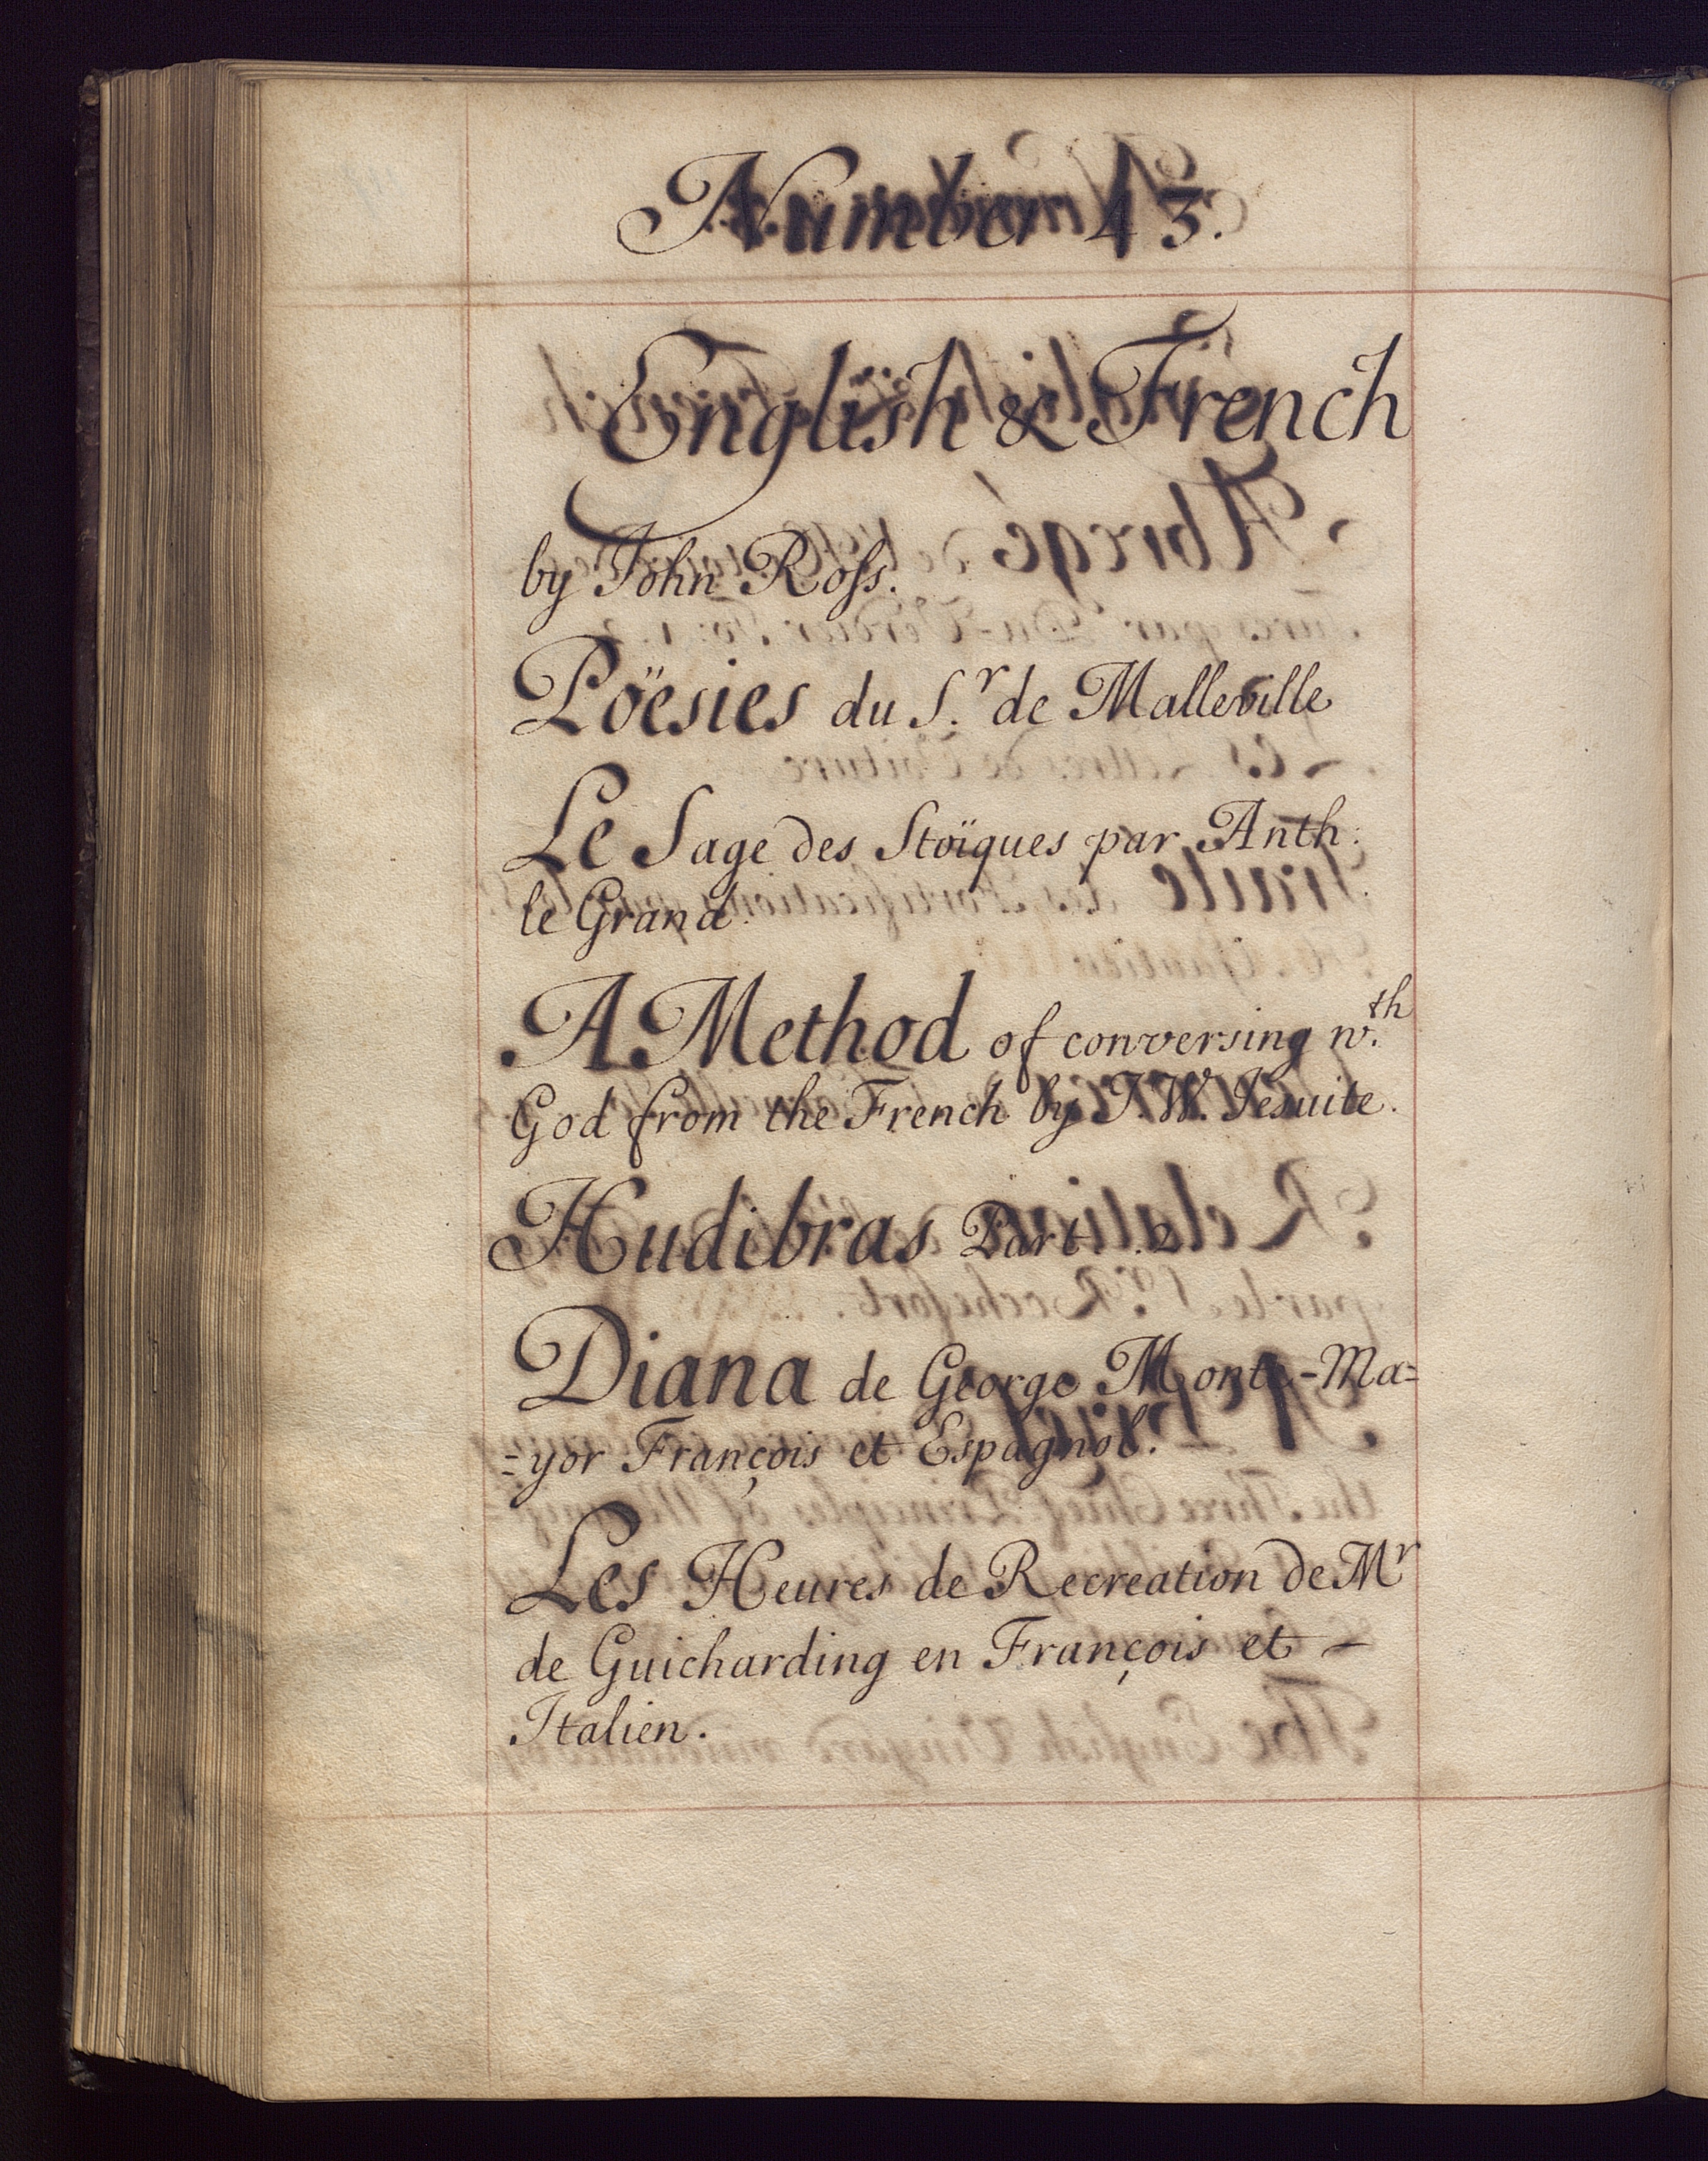 Number 43.
English & French
by John Ross.
Pöesies du S.r de Malleville
Le Sage des Stoïques par Anth:
le Grand.
A Method of conversing w.th
God from the French by J. W. Jesuite.
Hudibras Part. 2
Diana de George Monte-Ma=
=yor François et Espagnol.
Les Heures de Recreation de Mr
de Guicharding en François et -
Italien.